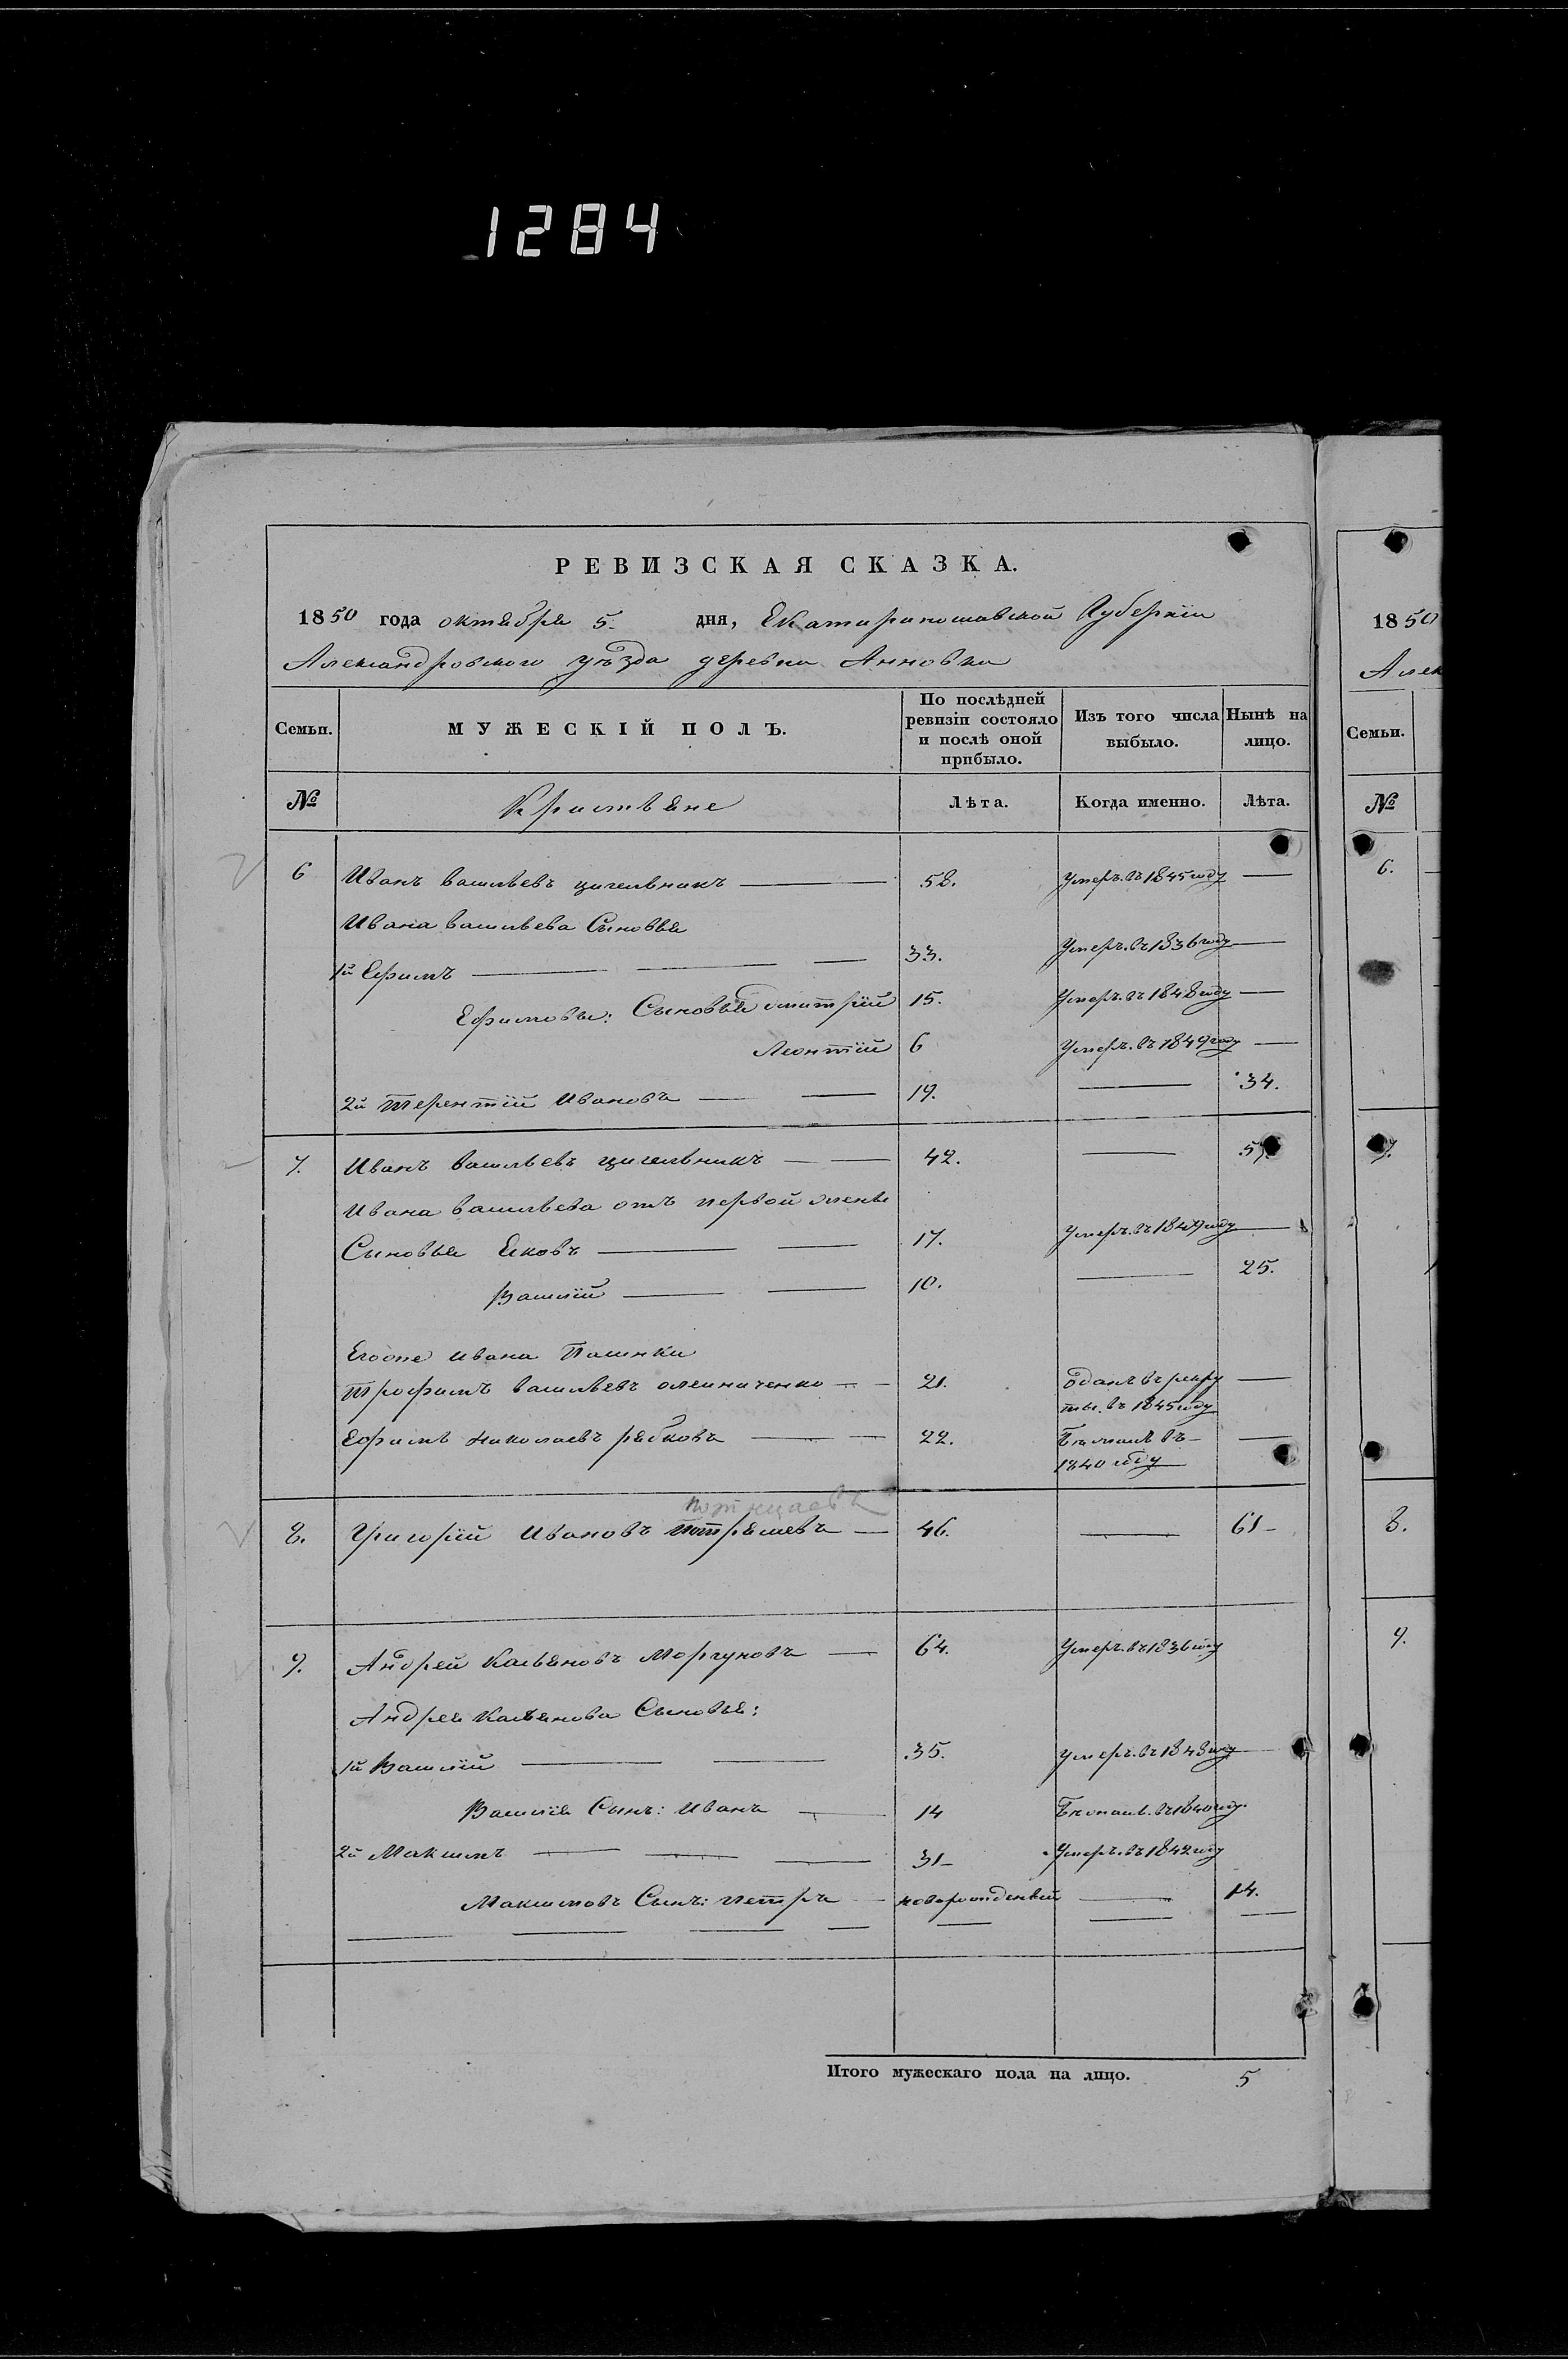 1284
РЕВИЗСКАЯ СКАЗКА.
1850 года октября 5. дня, Екатиринославской Губернiи
Александровского уѣзда деревни Анновки
Семьи. МУЖЕСКІЙ ПОЛЪ. По послѣдней ревизіи состояло и послѣ оной прибыло. Изъ того числа выбыло. Нынѣ на лицо.
№ Кристьяне Лѣта. Когда именно. Лѣта.
6 Иванъ Васильевъ цигельникъ 58. Умеръ въ 1845 году
Ивана Васильева Сыновья
1й Ефимъ 33. Умеръ въ 1836 году
Ефимовы: Сыновья Дмитрій 15. Умеръ въ 1848 году
Леонтій 6 Умеръ въ 1849 году
2й Терентій Ивановъ 19. 34.
7. Иванъ Васильевъ цигельникъ 42. 57.
Ивана Васильева отъ первой жены
Сыновья Яковъ 17. Умеръ въ 1849 году
Василій 10. 25.
Егоже Ивана Пасинки
Трофимъ Васильевъ олейниченко 21. Оданъ въ рекру
ты въ 1845 году
Ефимъ Николаевъ рябковъ 22. Бѣжалъ въ
1840 году
8. Григорій Ивановъ 46. 61
9. Андрей Касьяновъ Моргуновъ 64. Умеръ въ 1836 году
Андрея Касьянова Сыновья:
1й Василій 35. Умеръ въ 1848 году
Василія Сынъ: Иванъ 14 Бѣжалъ въ 1840 году
2й Максимъ 31 Умеръ въ 1842 году
Максимовъ Сынъ: Петръ новорожденый 14.
Итого мужескаго пола на лицо. 5
1850
Алек
Семьи.
№
6.
7.
8.
9.